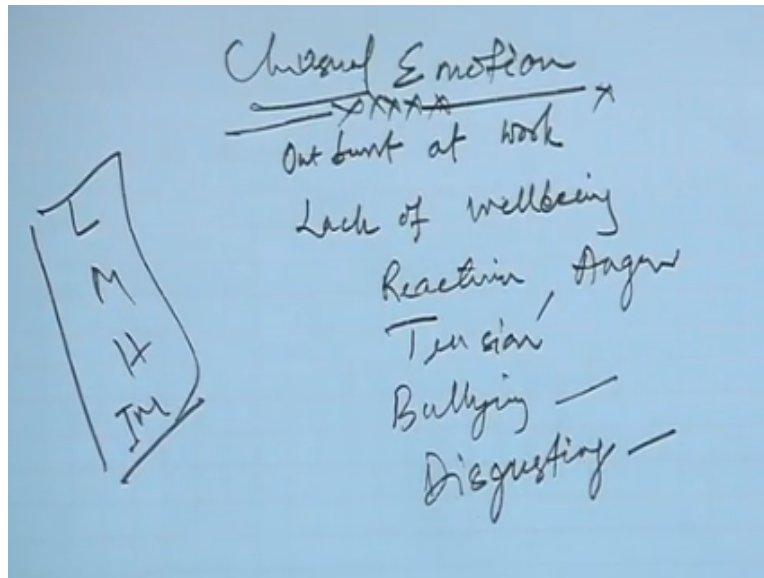 Unusual Emotion
x x x x x x
Outburst at work
Lack of wellbeing
Reaction, Anger
Tension
Bullying —
Disgusting —
L
M
H
IM